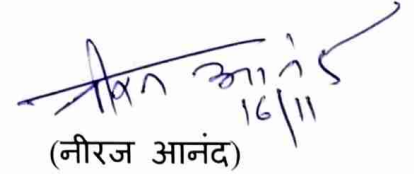 नीरज आनंद
16/11
(नीरज आनंद)